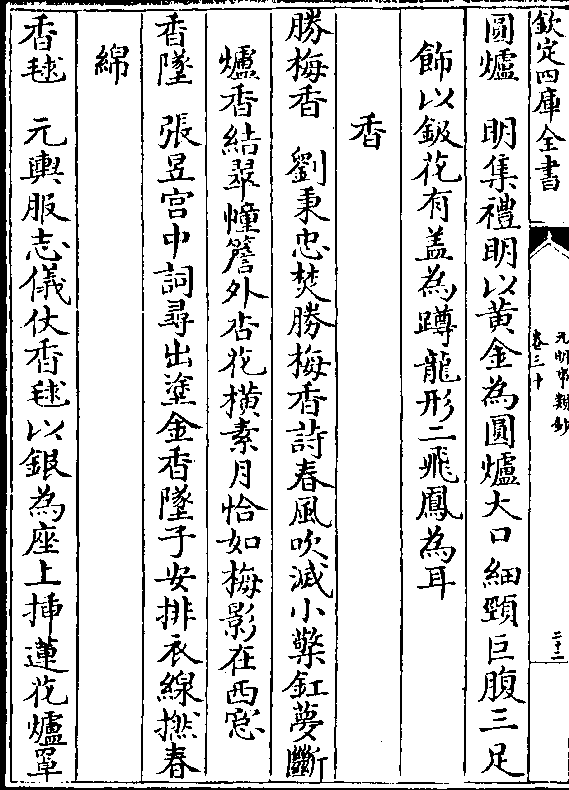 欽定四庫全書
元明事類鈔
卷三十
二十二
圓爐　明集禮明以黃金為圓爐大口細頸巨腹三足
飾以鈒花有盖為蹲龍形二飛鳳為耳
香
勝梅香　劉秉忠焚勝梅香詩春風吹滅小檠釭夢斷
爐香結翠幢簷外杏花橫素月恰如梅影在西窓
香墜　張昱宫中詞尋出塗金香墜子安排衣線撚春
綿
香毬　元輿服志儀仗香毬以銀為座上揷蓮花爐罩